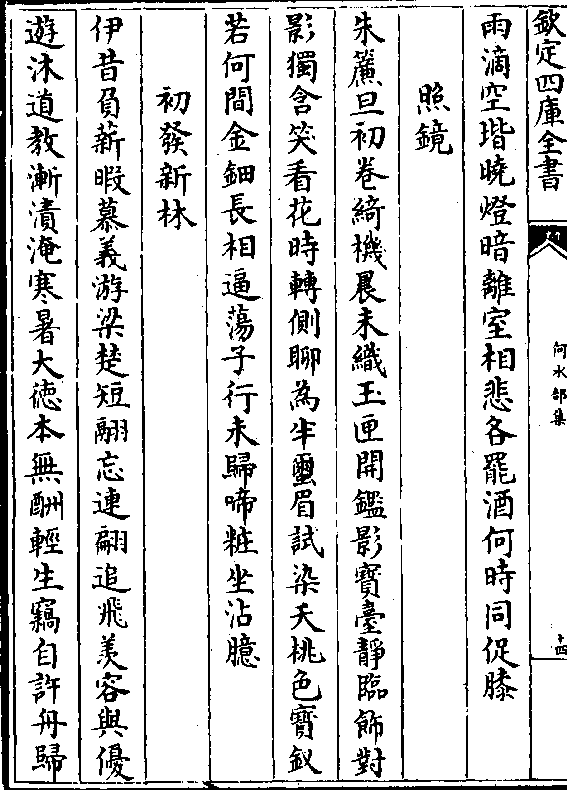 欽定四庫全書
何水部集
十四
雨滴空堦曉燈暗離室相悲各罷酒何時同促膝
照鏡
朱簾旦初卷綺機晨未織玉匣開鑑影寶臺靜臨飾對
影獨含笑看花時轉側聊為半璽眉試染夭桃色寶釵
若何間金鈿長相逼蕩子行未歸啼粧坐沾臆
初發新林
伊昔負薪暇慕義游梁楚短翮忘連翩追飛羡容與優
遊沐道教漸漬淹寒暑大德本無酬輕生竊自許舟歸